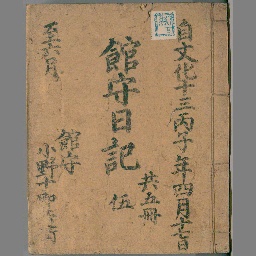 自文化十三丙子年四月十七日
館守日記
共五冊
伍
至六月
館守
小野十郎